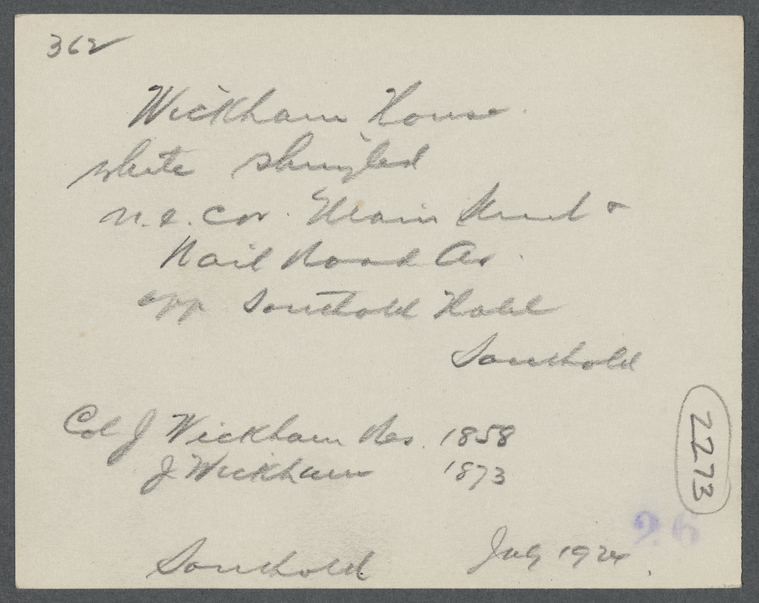 362
Wickham House
white shingled
n.e. cor. Main Street &
Rail Road Av.
opp Southold Hotel
Southold
Col J Wickham Res. 1858
J Wickham 1873
2273
26
Southold July 1924